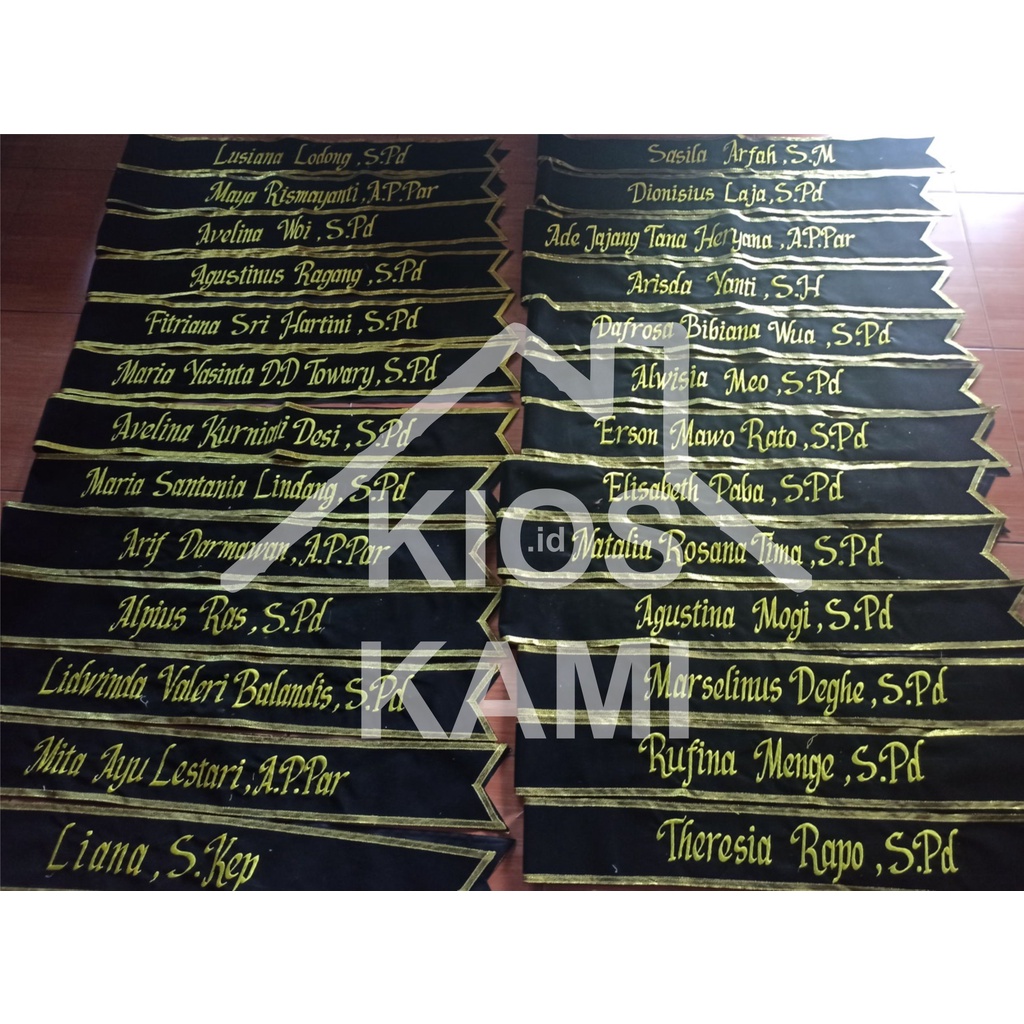 Lusiana Lodong, S.Pd
Maya Rismayanti, A.P.Par
Avelina Woi, S.Pd
Agustinus Ragang, S.Pd
Fitriana Sri Hartini, S.Pd
Maria Yasinta D.D Towary, S.Pd
Avelina Kurniati Desi, S.Pd
Maria Santania Lindang, S.Pd
Arif Darmawan, A.P.Par
Alpius Ras, S.Pd
Lidwinda Valeri Balandis, S.Pd
Mita Ayu Lestari, A.P.Par
Liana, S.Kep
Sasila Arfah, S.M
Dionisius Laja, S.Pd
Ade Jajang Tana Heryana, A.P.Par
Arisda Yanti, S.H
Dafrosa Bibiana Wua, S.Pd
Alwisia Meo, S.Pd
Erson Mawo Rato, S.Pd
Elisabeth Paba, S.Pd
Natalia Rosana Tima, S.Pd
Agustina Mogi, S.Pd
Marselinus Deghe, S.Pd
Rufina Menge, S.Pd
Theresia Rapo, S.Pd
KIOS
.id
KAMI